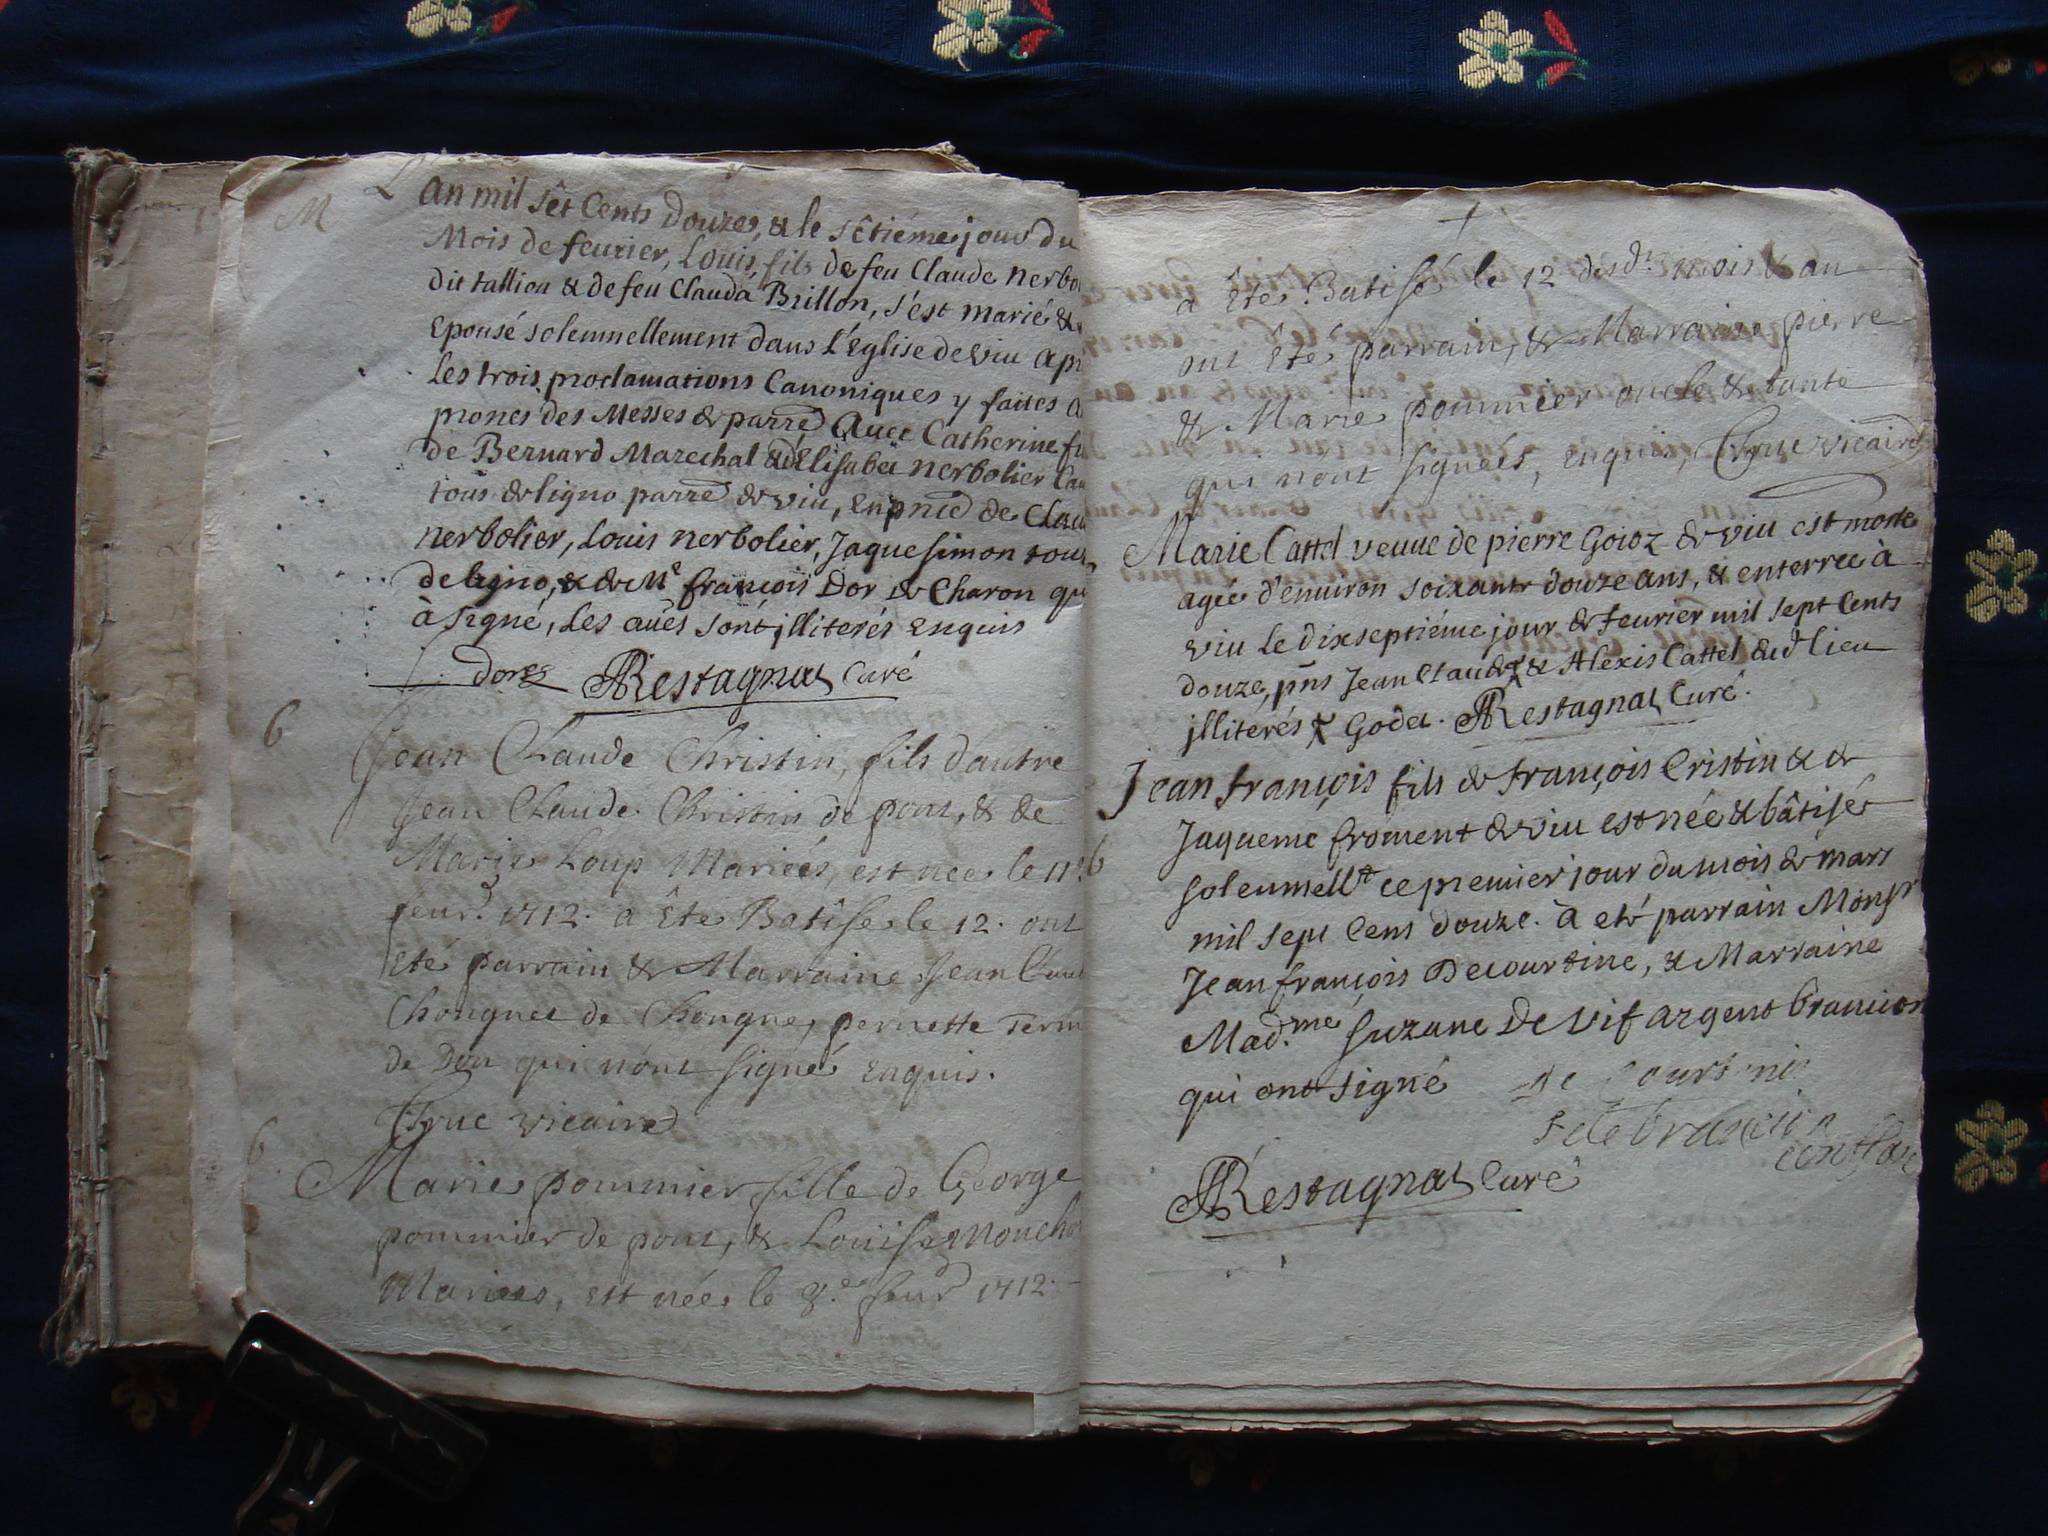 M
L'an mil sêt Cents Douze, & le sêtiéme jour du
Mois de feurier, Louis, fils de feu Claude nerbo
dit tallion & de feu Clauda Brillon, s'est marié &
Epousé solemnellement dans L'Eglise de viu ap
Les trois proclamations Canoniques y faites
prones des Messes & parre Auec Catherine
de Bernard Marechal & d'Elisabet nerbolier
tous de ligno parre de viu, En pnce de Clau
nerbolier, Louis nerbolier, Jaque simon tous
de ligno, & de Mr françois Dor de Charon qu
à signé, Les aues sont illiterés enquis
Dor ARestagnat Curé
6
Jean Claude Christin, fils dautre
Jean Claude Christin de pont, & de
Marie Loup Mariés, est nee le 11e
feur. 1712. a Eté Batise le 12. ont
Eté parrain & Marraine Jean Clau
Chougnet de Chougne, pernette
de Don qui n'ont signé enquis.
Truc vicaire
6
Marie pommier fille de George
pommier de pont, & Louise Mouchon
Maries, est née le 8e feur 1712.
a Eté Batisé le 12 desd. mois & an
ont Eté parrain, & Marraine pierre
& Marie pommier oncle & tante
qui n'ont signées, enquis, Truc vicaire
Marie Cattel veuue de pierre Goioz de viu est morte
agée d'enuiron soixante douze ans, & enterree à
viu le dixseptiéme jour de feurier mil sept Cents
douze, pns Jean Claude & Alexis Cattel dud lieu
jlliterés Godet. ARestagnat Curé.
Jean françois fils de françois Cristin & de
6 Jaqueme froment de viu est née & bâtisé
solemnellt ce premier jour du mois de mars
mil sept Cens douze. à eté parrain Monsr
Jean françois Decourtine, & Marraine
Mad.me suzane De vif argent brancion
qui ont signé de Courtine
brancion
ARestagnat Curé